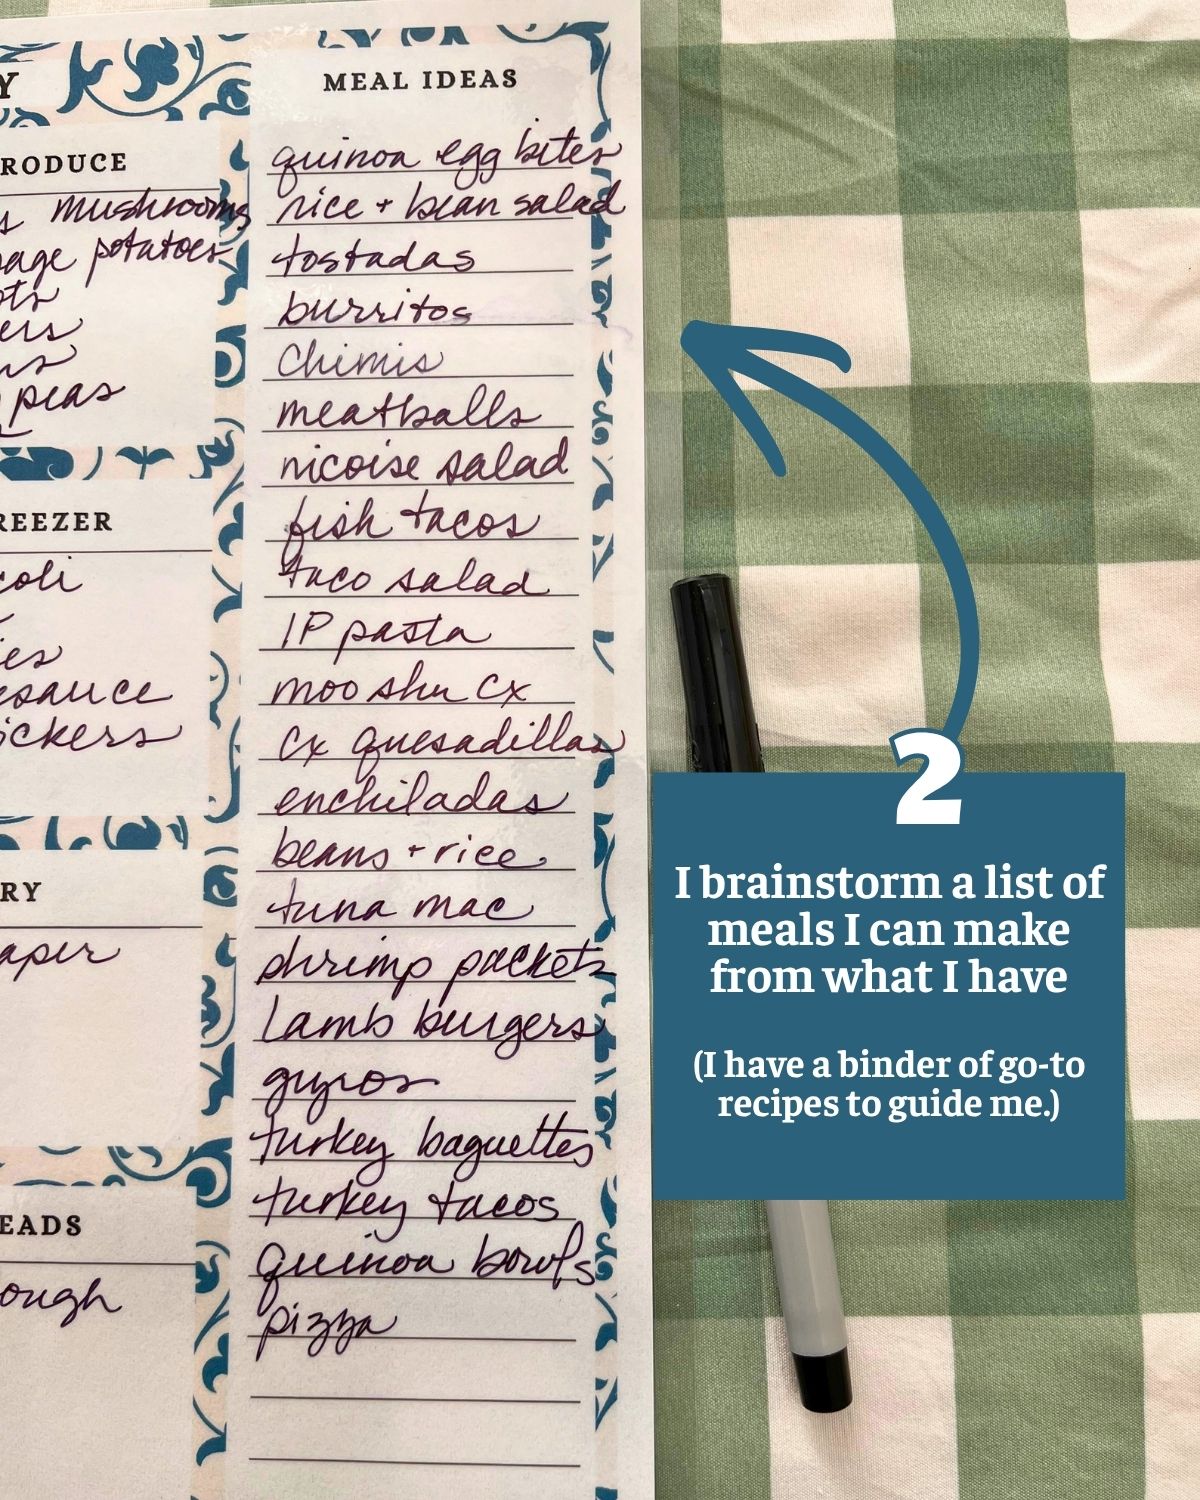 Y
RODUCE
s mushrooms
age potatoes
ots
ers
ns
peas
REEZER
coli
es
esauce
ickers
RY
aper
EADS
ough
MEAL IDEAS
quinoa egg bites
rice + bean salad
tostadas
burritos
chimis
meatballs
nicoise salad
fish tacos
taco salad
IP pasta
moo shu cx
cx quesadillas
enchiladas
beans + rice
tuna mac
shrimp packets
lamb burgers
gyros
turkey baguettes
turkey tacos
quinoa bowls
pizza
2
I brainstorm a list of
meals I can make
from what I have
(I have a binder of go-to
recipes to guide me.)